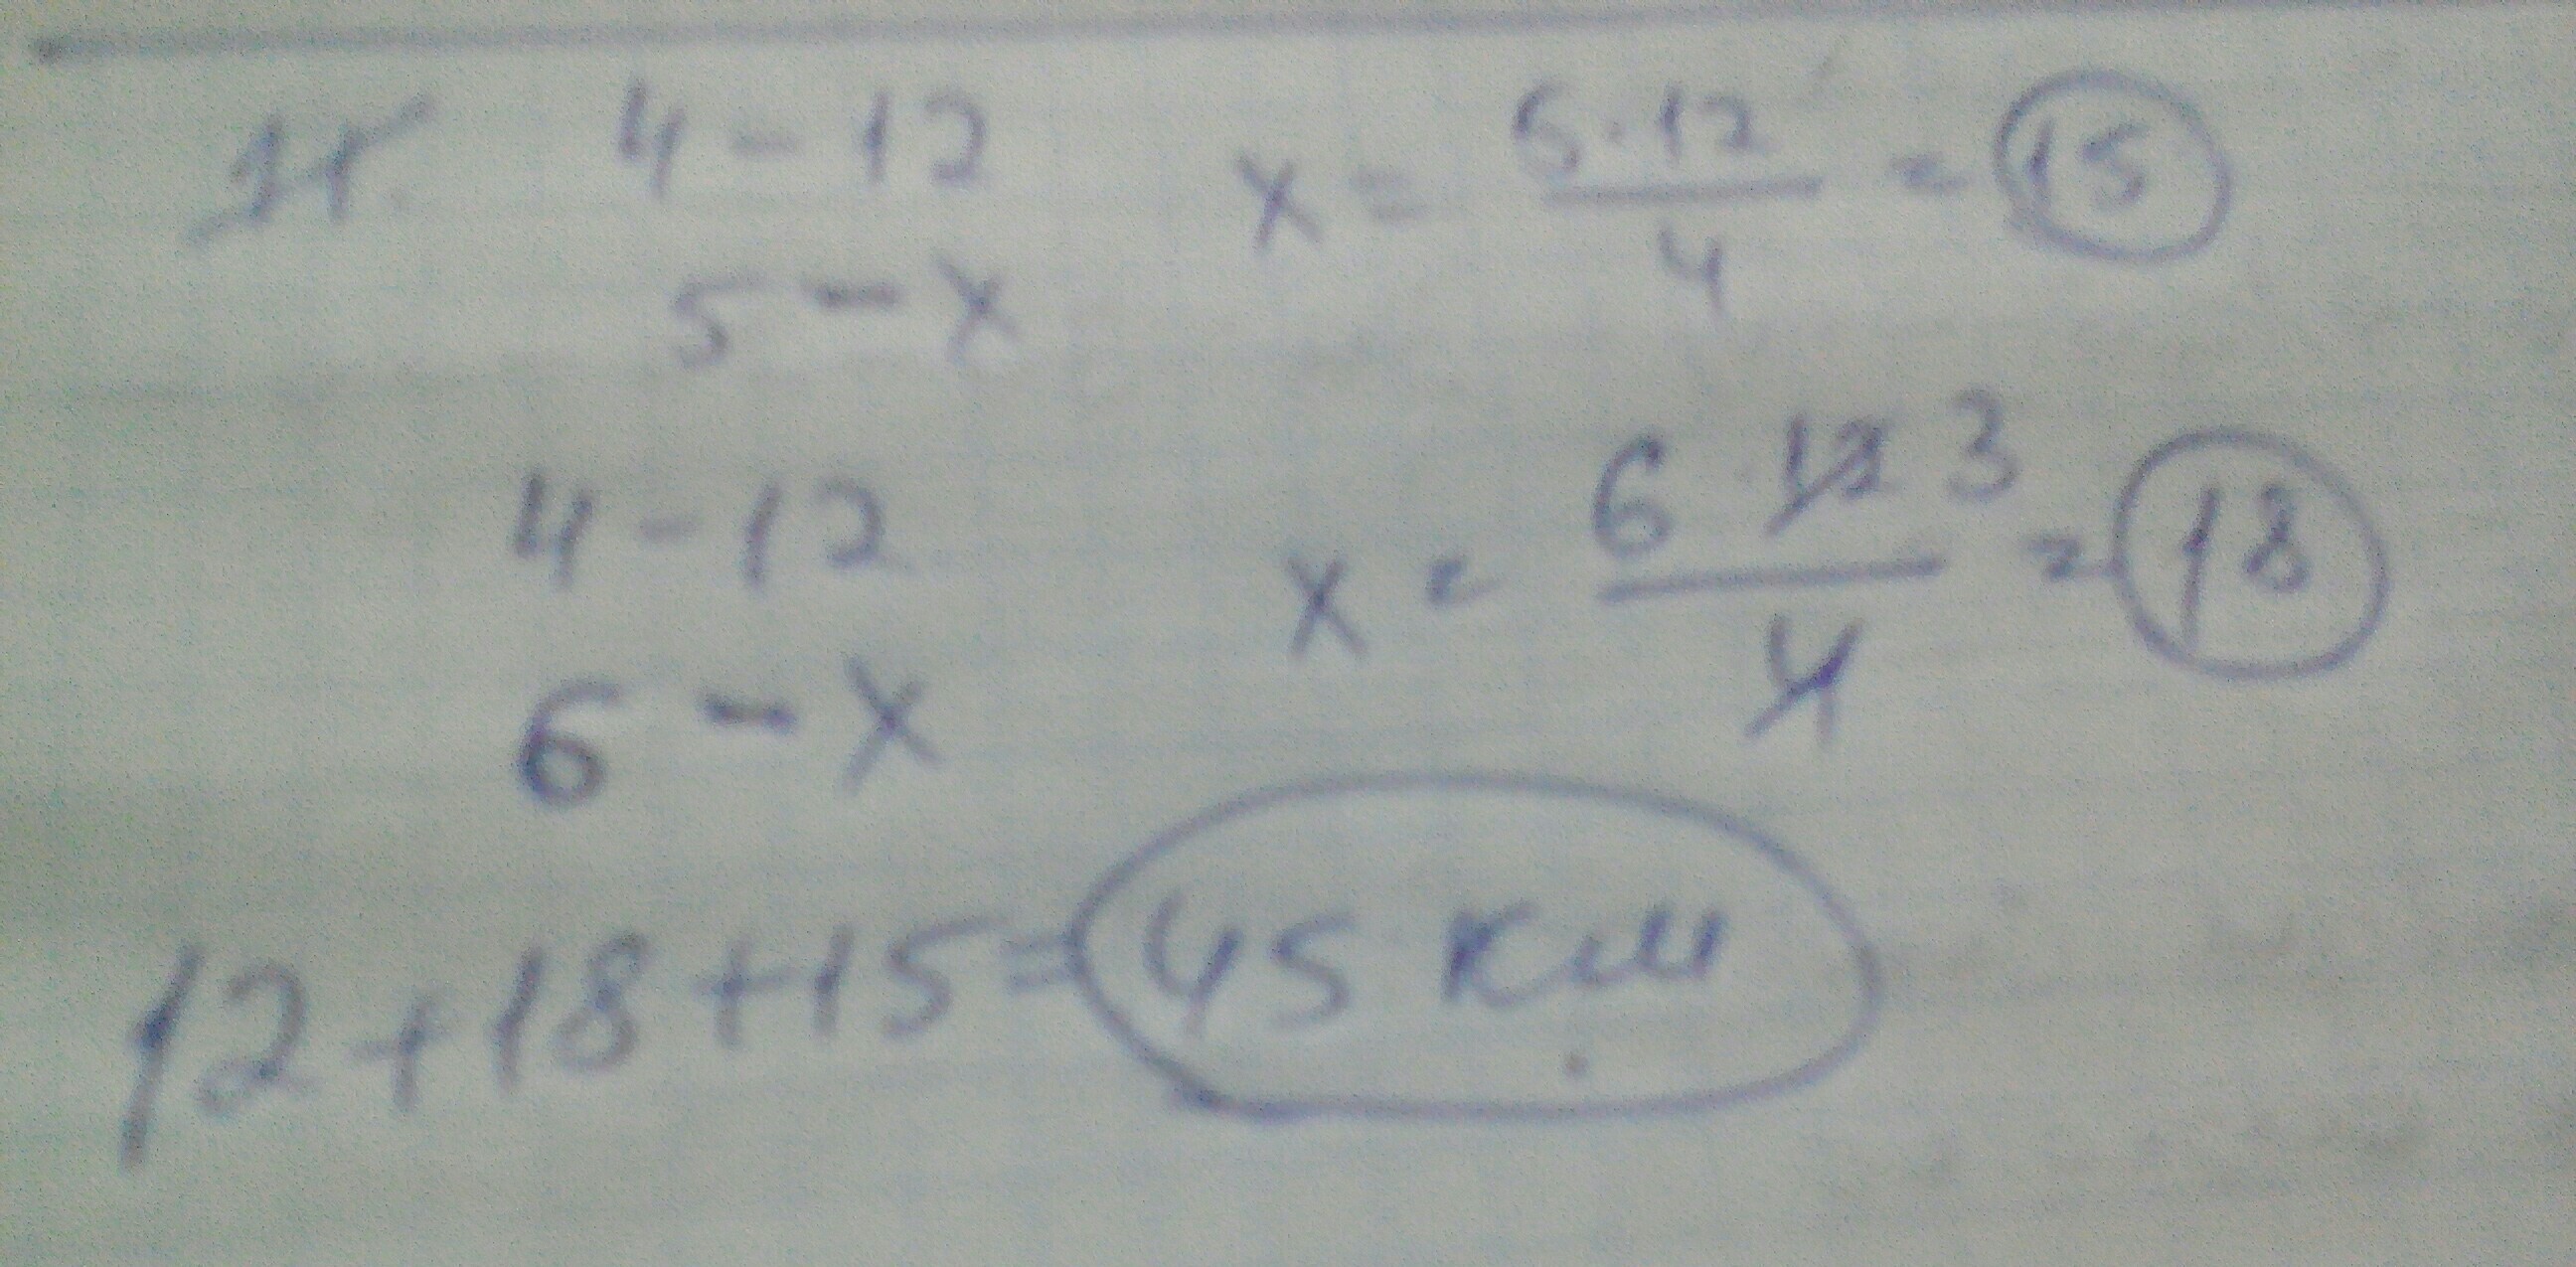 11. 4 - 12 x = 5·12 / 4 = 15
5 - x
4 - 12 x = 6·12 3 / 4 = 18
6 - x
12+18+15=45 км